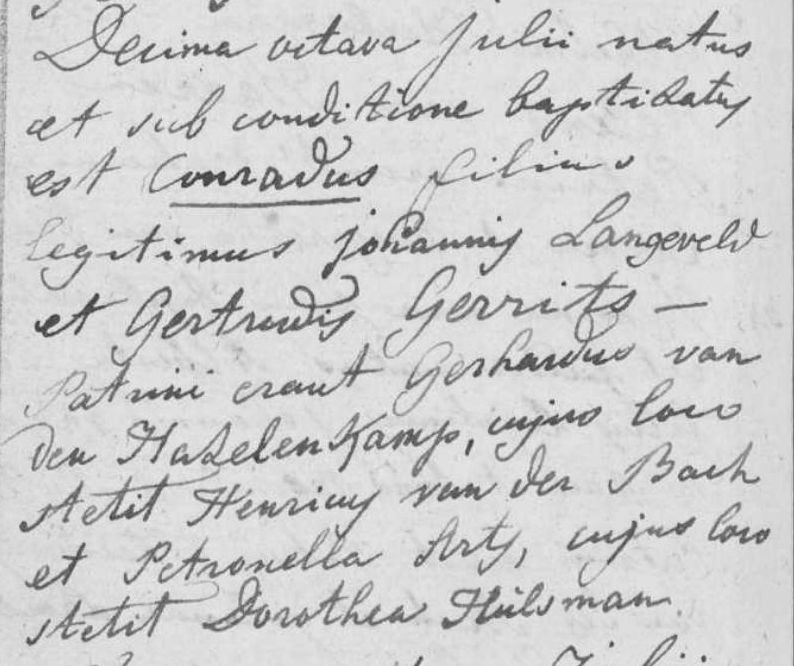 Decima octava Julii natus
et sub conditione baptizatus
est Conradus filius
legitimus Johannis Langeveld
et Gertrudis Gerrits —
Patrini erant Gerhardus van
den Hazelenkamp, cujus loco
stetit Henricus van der Bach
et Petronella Arts, cujus loco
stetit Dorothea Hülsman.
Julii